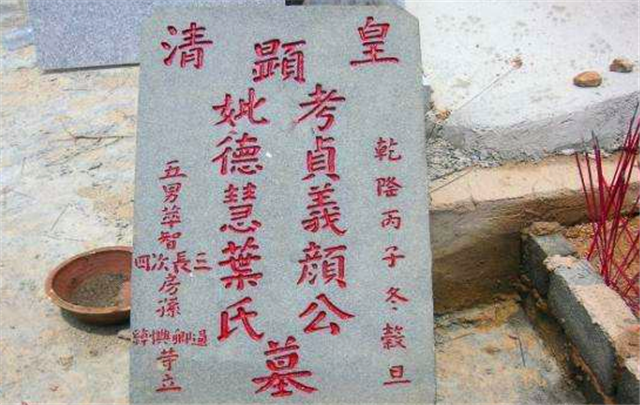 皇清
乾隆丙子冬穀旦
顯
考貞義顏公
妣德慧葉氏
墓
五男萃智
三長次四
房孫
卿
等立